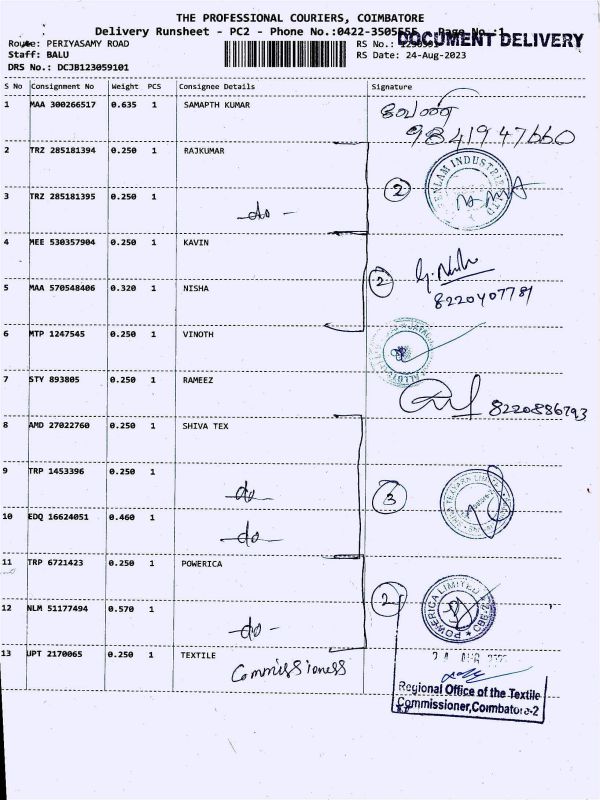 THE PROFESSIONAL COURIERS, COIMBATORE
Delivery Runsheet - PC2 - Phone No.:0422-3505555, Page No.:1
DOCUMENT DELIVERY
Route: PERIYASAMY ROAD
RS No.:
Staff: BALU
RS Date: 24-Aug-2023
DRS No.: DCJB123059101
S No Consignment No Weight PCS Consignee Details Signature
1 MAA 300266517 0.635 1 SAMAPTH KUMAR
9841947660
2 TRZ 285181394 0.250 1 RAJKUMAR
2
3 TRZ 285181395 0.250 1
-do-
4 MEE 530357904 0.250 1 KAVIN
2
5 MAA 570548406 0.320 1 NISHA
8220407781
6 MTP 1247545 0.250 1 VINOTH
7 STY 893805 0.250 1 RAMEEZ
8220886793
8 AMD 27022760 0.250 1 SHIVA TEX
9 TRP 1453396 0.250 1
-do-
3
10 EDQ 16624051 0.460 1
-do-
11 TRP 6721423 0.250 1 POWERICA
2
POWERICA LIMITED CBE-2
12 NLM 51177494 0.570 1
-do-
13 UPT 2170065 0.250 1 TEXTILE
Commissioness
24 AUG
Regional Office of the Textile
Commissioner,Coimbatore-2